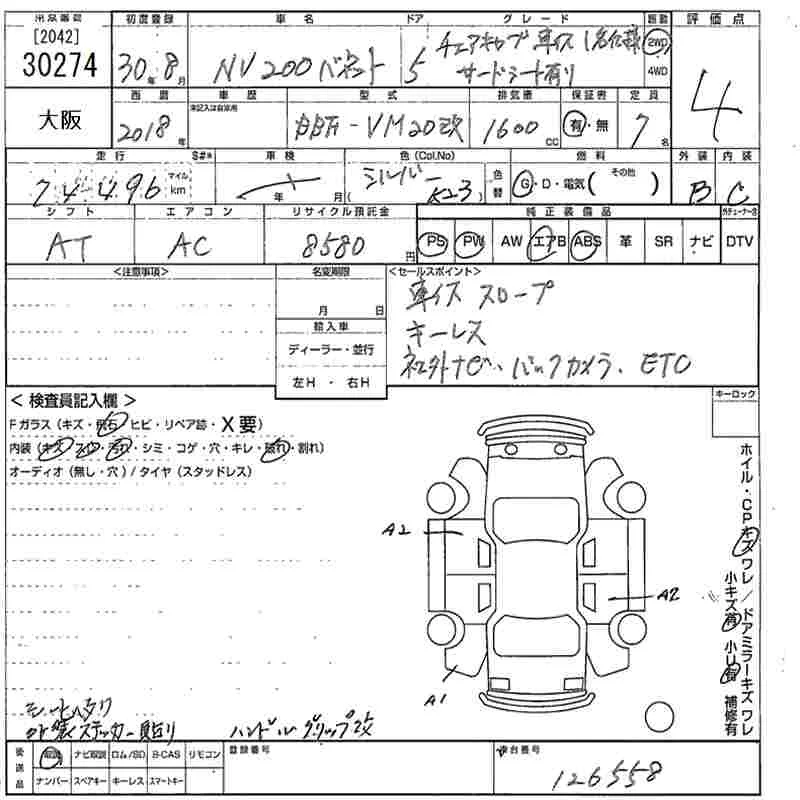 出品番号 初度登録 車名 ドア グレード 駆動 評価点
[2042]
30274 30年8月 NV200バネット 5 チェアキャブ 車イス1名仕様 2WD 4
サードシート有り 4WD
大阪 西暦 車歴 型式 排気量 保証書 定員
未記入は自家用
2018年 VM20改 1600cc 有・無 7名
走行 S#* 車検 色(Col.No) 色替 燃料 外装 内装
74496 マイル km 年 月 シルバー (K23) G・D・電気( その他 ) B C
シフト エアコン リサイクル預託金 純正装備品
AT AC 8580円 PS PW AW エアB ABS 革 SR ナビ DTV
<注意事項> 名変期限 <セールスポイント>
月 日 車イス スロープ
輸入車 キーレス
ディーラー・並行 社外ナビ・バックカメラ・ETC
左H ・ 右H
< 検査員記入欄 > キーロック
Fガラス(キズ・飛石・ヒビ・リペア跡・X要)
内装(キズ・スレ・汚れ・シミ・コゲ・穴・キレ・破れ・割れ)
オーディオ(無し・穴)/タイヤ(スタッドレス)
ホイル・CPキズ ワレ/ドアミラーキズ ワレ
小キズ有 小U有 補修有
A2
A2
A1
シートへたり
外装ステッカー貼り ハンドルグリップ改
後送品 取説 ナビ取説 ロム/SD B-CAS リモコン 登録番号 車台番号
ナンバー スペアキー キーレス スマートキー 126558